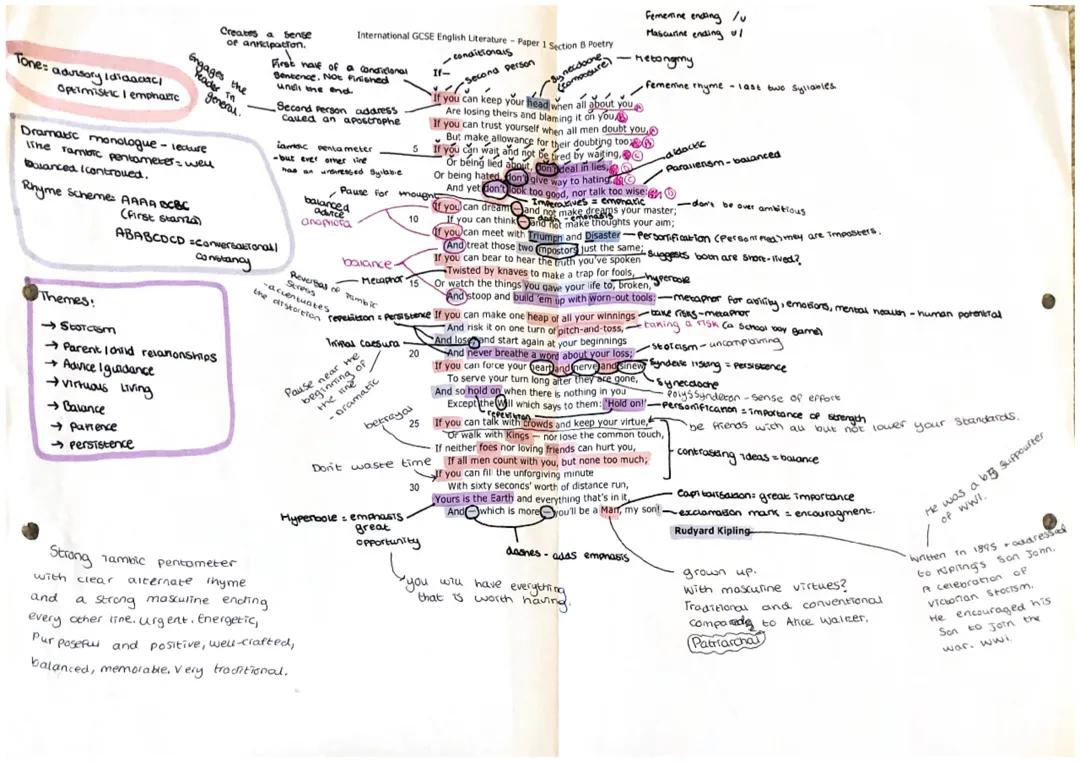 Femenine ending /u
Mascurine ending u/
International GCSE English Literature – Paper 1 Section B Poetry
Creates a sense
of anticipation.
conditionals
If—
second person
synecdoche
(composure)
Metongmy
Tone: advisory/didactic/
optimistic/emphatic
Engages the
reader in
general.
First half of a conditional
sentence. Not finished
until the end.
Second person address
called an apostrophe
femenine rhyme - last two syllables.
If you can keep your head when all about you
Are losing theirs and blaming it on you,
If you can trust yourself when all men doubt you,
But make allowance for their doubting too;
5 If you can wait and not be tired by waiting,
Or being lied about, don't deal in lies,
Or being hated, don't give way to hating,
And yet don't look too good, nor talk too wise:
Dramatic monologue - lecture
line iambic pentameter = well
balanced/controlled.
Rhyme Scheme: AAAA DCBC
(First stanza)
ABABCDCD = conversational/
constancy
iambic pentameter
-but ever other line
has an unstressed syllable
didactic
Parallelism - balanced
Imperatives = emphatic
Pause for thought
balanced
advice
anaphora
If you can dream — and not make dreams your master;
don't be over ambitious
dash - emphasis
10 If you can think — and not make thoughts your aim;
If you can meet with Triumph and Disaster
Personification (Personified) they are imposters.
And treat those two impostors just the same;
Suggests both are short-lived?
If you can bear to hear the truth you've spoken
balance
Metaphor
Twisted by knaves to make a trap for fools,
hyperbole
15 Or watch the things you gave your life to, broken,
And stoop and build 'em up with worn-out tools:
metaphor for ability, emotions, mental health - human potential
Reversal of iambic
stress
-accentuates
the distortion
Themes:
→ Stoicism
→ Parent/child relationships
→ Advice/guidance
→ Virtuous living
→ Balance
→ Patience
→ Persistence
repetition = persistence
If you can make one heap of all your winnings
take risks-metaphor
And risk it on one turn of pitch-and-toss,
taking a risk (a school boy game)
And lose, and start again at your beginnings
20 And never breathe a word about your loss;
stoicism - uncomplaining
Initial caesura
Pause near the
beginning of
the line
- dramatic
If you can force your heart and nerve and sinew
Syndetic listing = persistence
To serve your turn long after they are gone,
Synecdoche
And so hold on when there is nothing in you
Polyssyndeton - sense of effort
Except the Will which says to them: 'Hold on!'
Personification = importance of strength
repetition
25 If you can talk with crowds and keep your virtue,
be friends with all but not lower your standards.
Or walk with Kings — nor lose the common touch,
betrayal
If neither foes nor loving friends can hurt you,
contrasting ideas = balance
If all men count with you, but none too much;
Don't waste time
If you can fill the unforgiving minute
30 With sixty seconds' worth of distance run,
Yours is the Earth and everything that's in it,
Capitalisation = great importance
And — which is more — you'll be a Man, my son!
exclamation mark = encouragment.
Rudyard Kipling
Hyperbole = emphasis
great
opportunity
you will have everything
that is worth having.
dashes - adds emphasis
grown up.
With masculine virtues?
Traditional and conventional
compared to Alice Walker.
Patriarchal
He was a big supporter
of WWI.
Written in 1895 + addressed
to Kipling's son John.
A celebration of
Victorian stocism.
He encouraged his
son to join the
war. WWI.
Strong iambic pentometer
with clear alternate rhyme
and a strong masculine ending
every other line. Urgent. Energetic,
Purposeful and positive, well-crafted,
balanced, memorable. Very traditional.